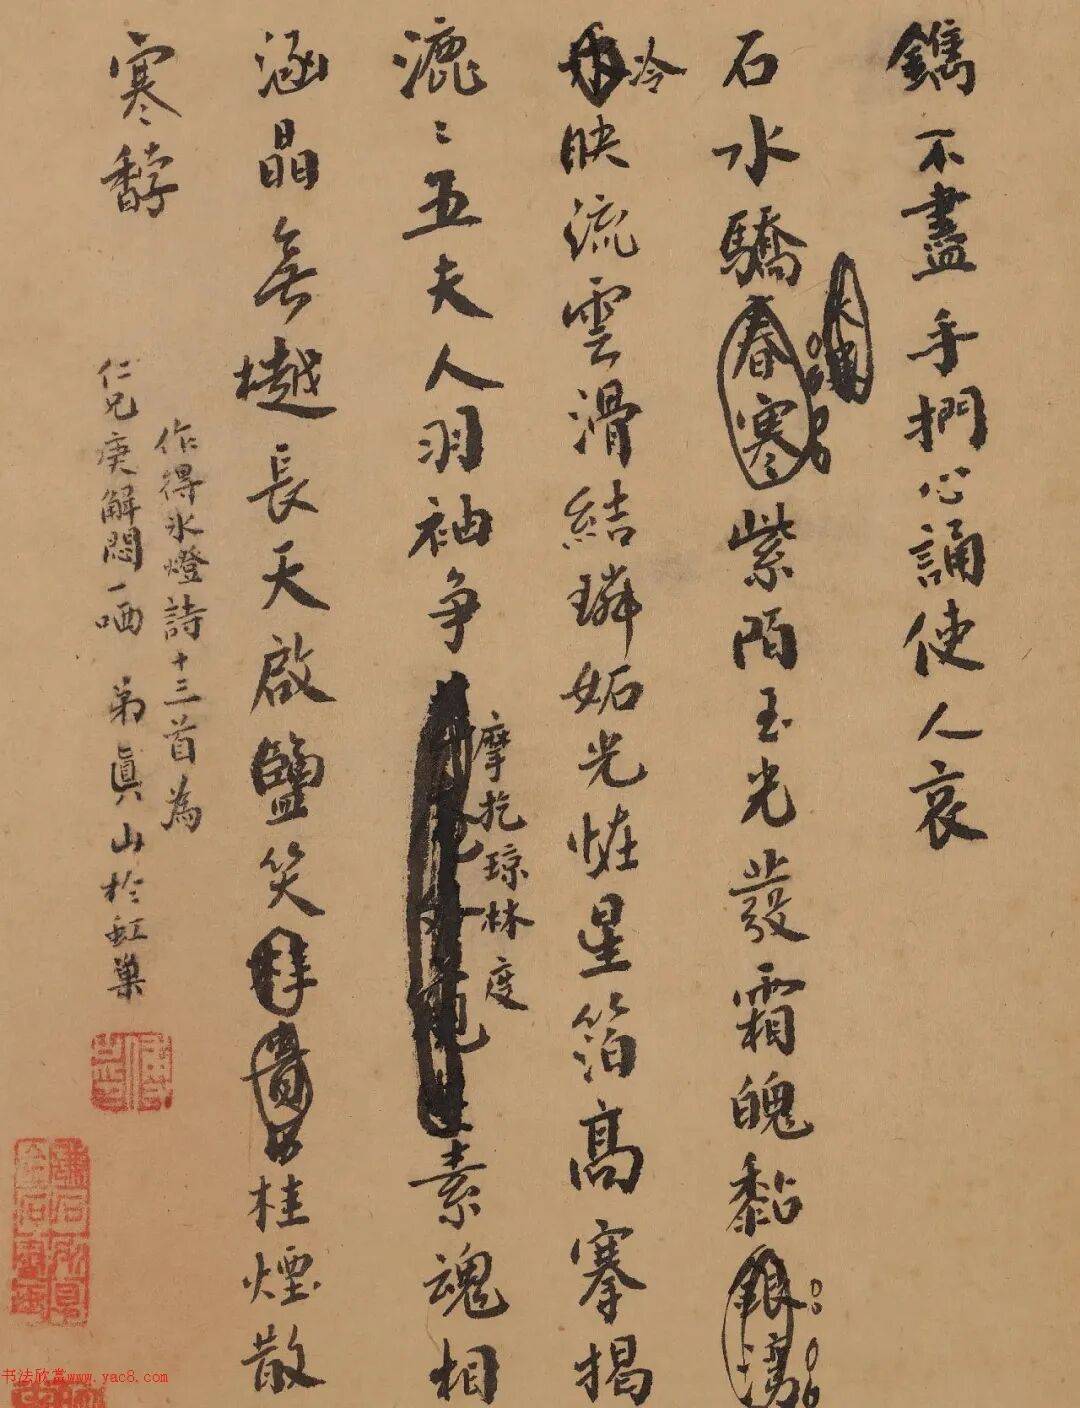 鐫不盡手捫心誦使人哀
石水驕春寒紫陌玉光發霜魄黏銀濤
冷映流雲滑結璘妬光恠星箔高搴揭
漉〻五夫人羽袖争素魂相
摩挖琼林度
涵晶無樾長天啟鹽笑桂煙散
寒馞
作得氷燈詩十三首為
仁兄庚解悶一哂 弟真山於虹巢
书法欣赏www.yac8.com